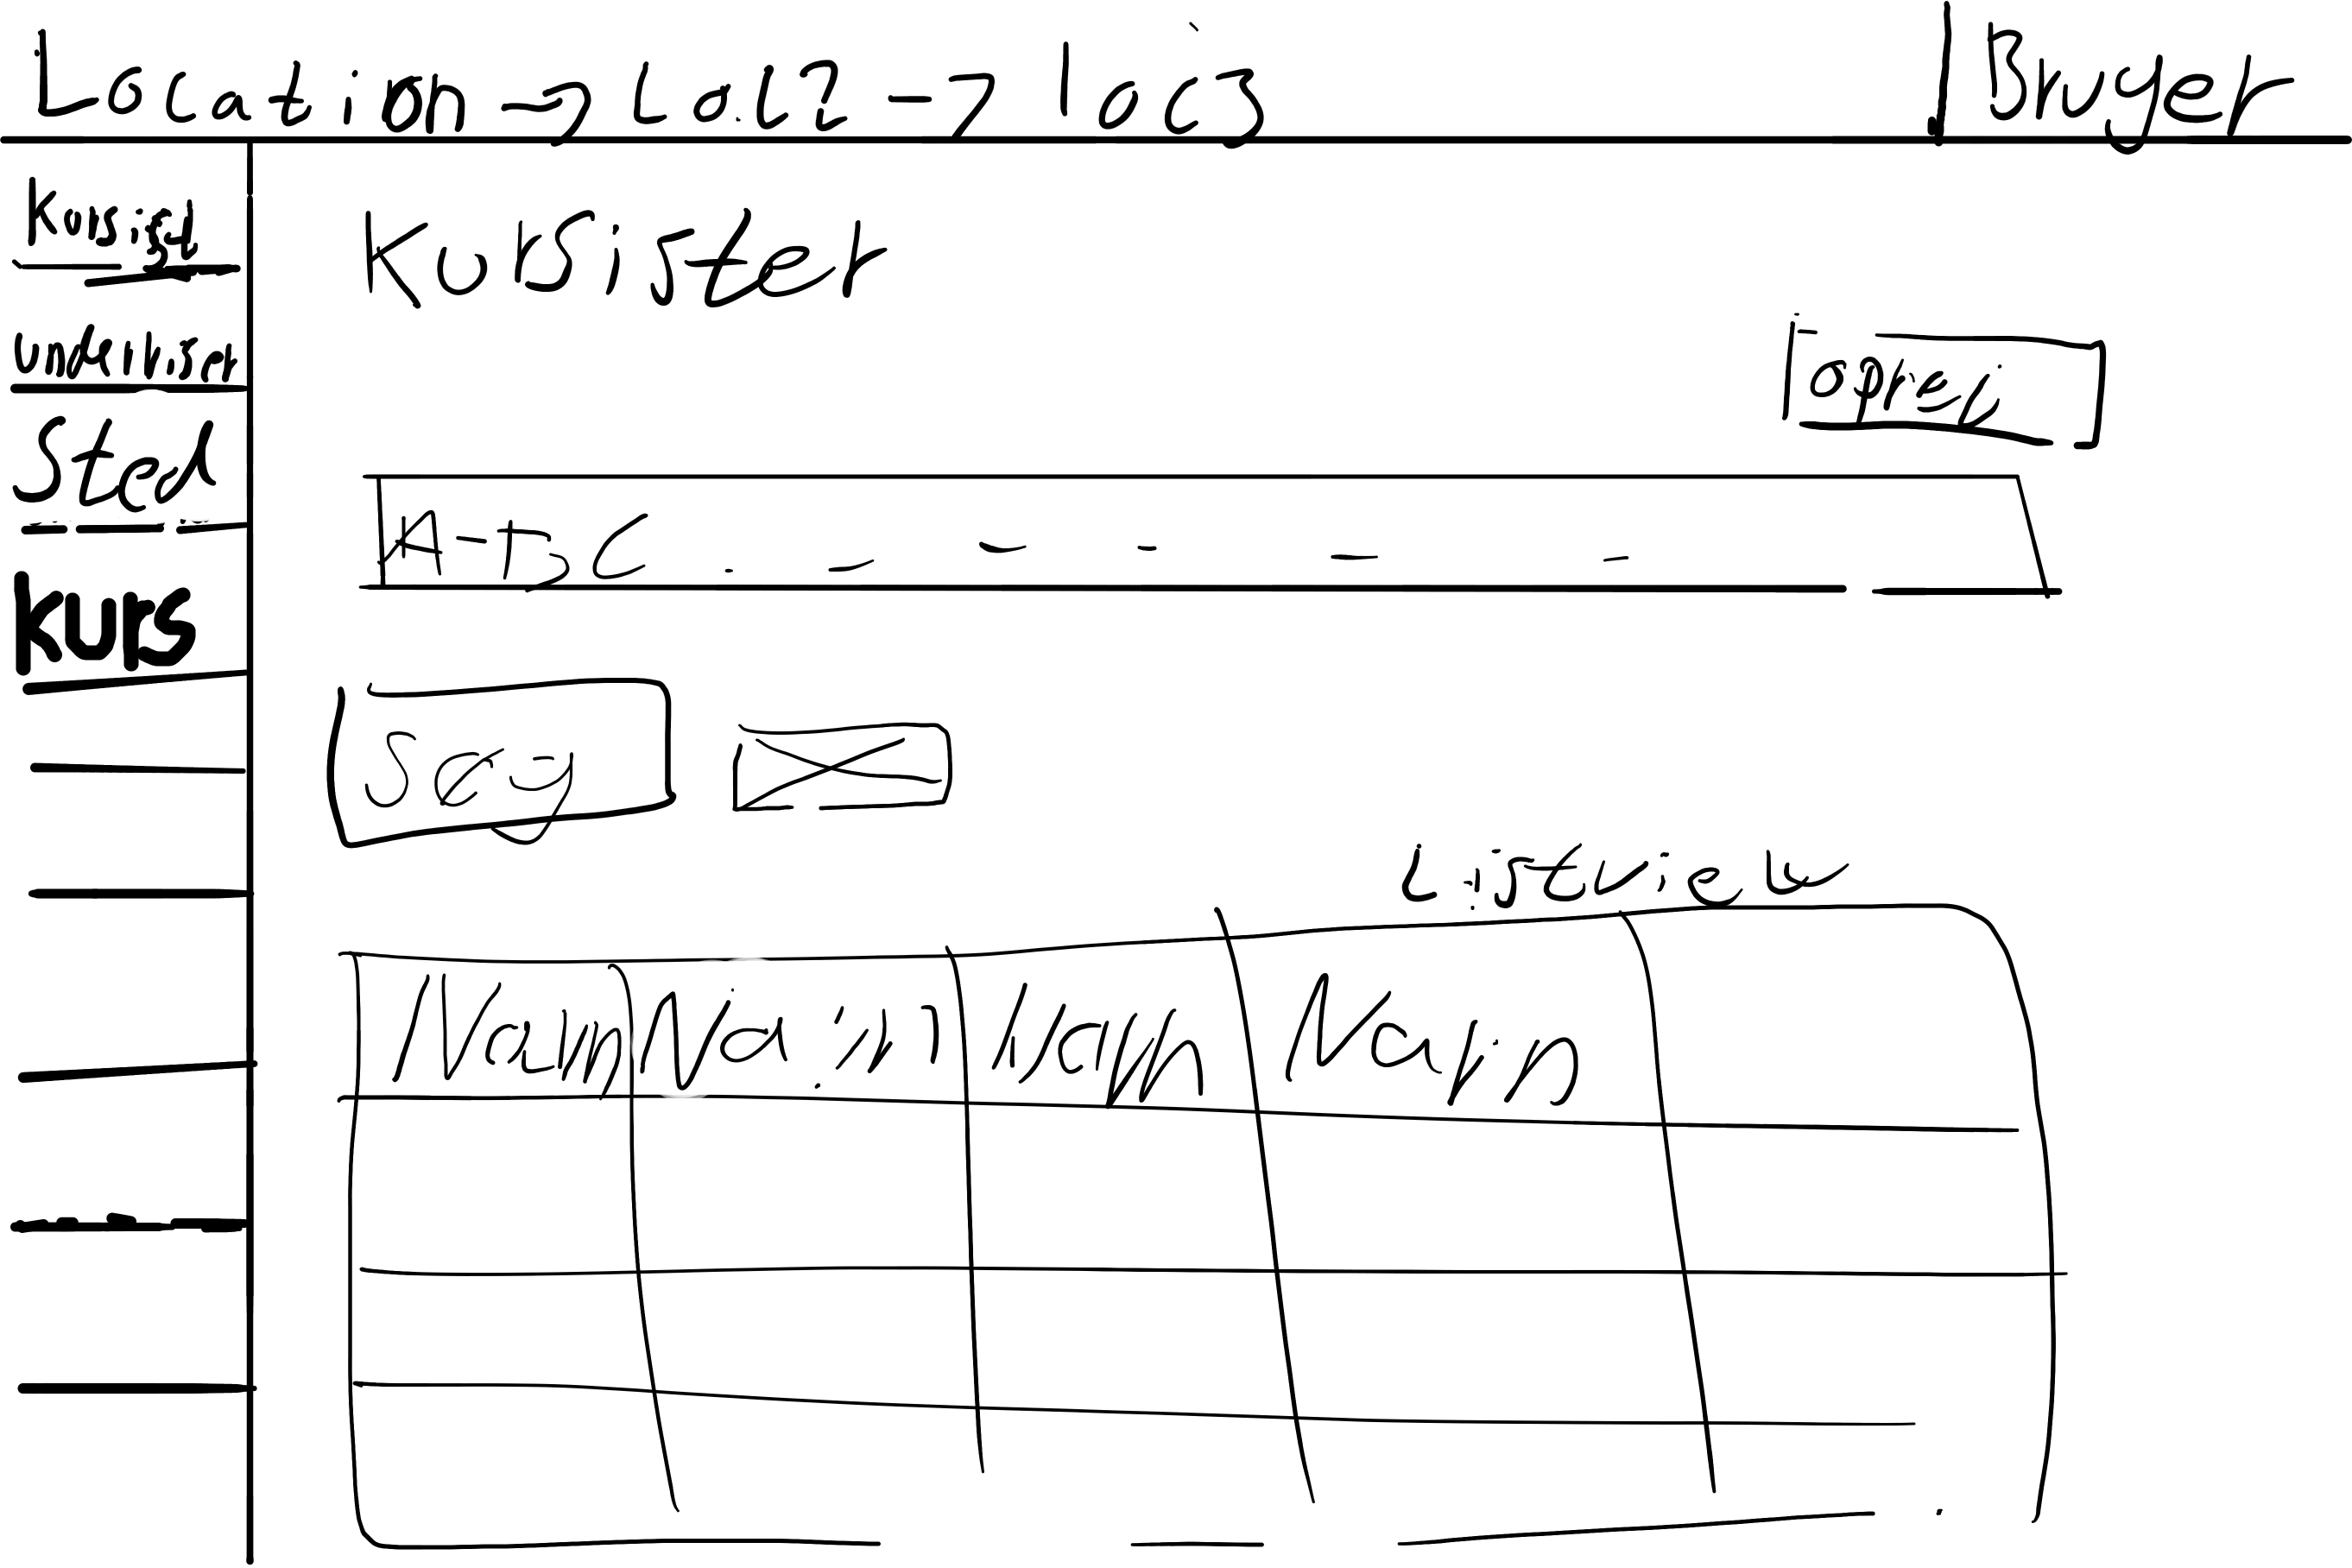 Location → Loc2 → loc3
Bruger
Kursister
Sted
Kurs
opret
A-B C . - - - - -
Søg
Listview
Navn Navn Navn Navn